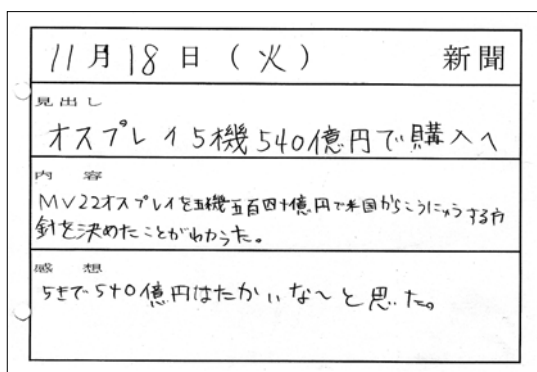 11月18日(火) 新聞
見出し
オスプレイ5機540億円で購入へ
内容
MV22オスプレイを五機五百四十億円で米国からこうにゅうする方
針を決めたことがわかった。
感想
5きで540億円はたかいな〜と思った。